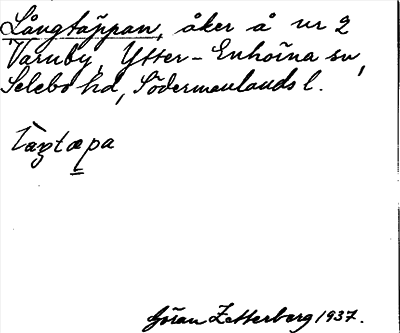 Långtäppan, åker å nr 2
Varnby, Ytter-Enhörna sn,
Selebo hd, Södermanlands l.
Göran Zetterberg 1937.